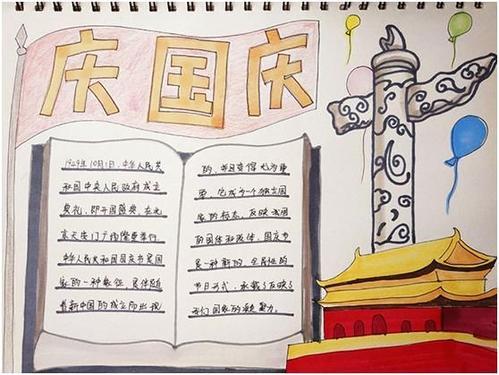 庆国庆
1949年10月1日，中华人民共
和国中央人民政府成立
典礼，即开国盛典，在北
京天安门广场隆重举行
中华人民共和国国庆节是国
家的一种象征，是伴随
着新中国的成立而出现
的，并且变得尤为重
要，它成为一个独立国
家的标志，反映我国
的国体和政体，国庆节
是一种新的、全民性的
节日形式，承载了反映了
我们国家的凝聚力。